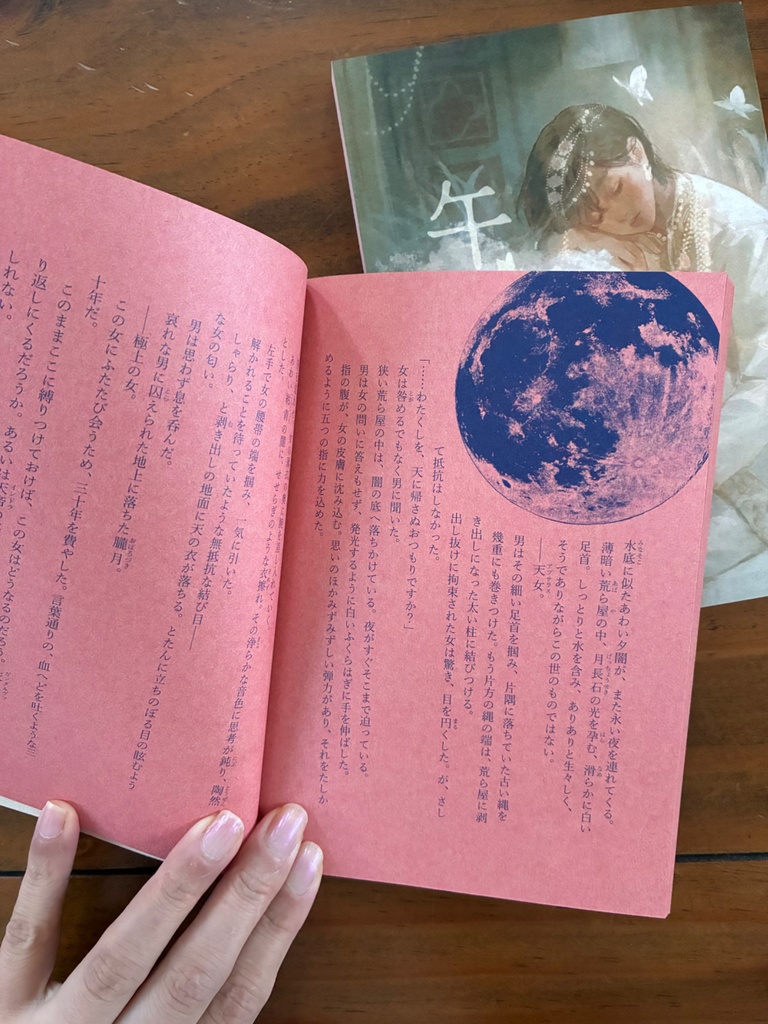 午
水底に似たあわい夕闇が、また永い夜を連れてくる。
薄暗い荒ら屋の中、月長石の光を孕む、滑らかに白い
足首。しっとりと水を含み、ありありと生々しく、
そうでありながらこの世のものではない。
――天女。
男はその細い足首を掴み、片隅に落ちていた古い縄を
幾重にも巻きつけた。もう片方の縄の端は、荒ら屋に剥
き出しになった太い柱に結びつける。
出し抜けに拘束された女は驚き、目を円くした。が、さし
て抵抗はしなかった。
「……わたくしを、天に帰さぬおつもりですか？」
女は咎めるでもなく男に聞いた。
狭い荒ら屋の中は、闇の底へ落ちかけている。夜がすぐそこまで迫っている。
男は女の問いに答えもせず、発光するように白いふくらはぎに手を伸ばした。
指の腹が、女の皮膚に沈み込む。思いのほかみずみずしい弾力があり、それをたしか
めるように五つの指に力を込めた。
せせらぎのような衣擦れ。その浄らかな音色に思考が鈍り、陶然
とした
左手で女の腰帯の端を掴み、一気に引いた。
解かれることを待っていたような無抵抗な結び目――
しゃらり、と剥き出しの地面に天の衣が落ちる。とたんに立ちのぼる目の眩むよう
な女の匂い。
男は思わず息を呑んだ。
哀れな男に囚えられた地上に落ちた朧月。
――極上の女。
この女にふたたび会うため、三十年を費やした。言葉通りの、血へどを吐くような三
十年だ。
このままここに縛りつけておけば、この女はどうなるのだろう。
り返しにくるだろうか。あるいは天
しれない。